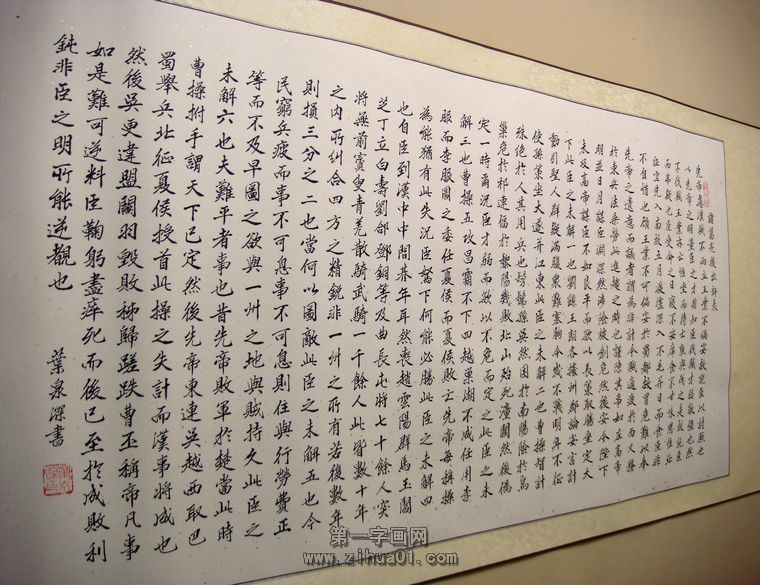 諸葛亮後出師表
先帝慮漢賊不兩立王業不偏安故託臣以討賊也
以先帝之明量臣之才固知臣伐賊才弱敵強也然
不伐賊王業亦亡惟坐而待亡孰與伐之是故託臣
而弗疑也臣受命之日寢不安席食不甘味思惟北
征宜先入南故五月渡瀘深入不毛并日而食臣非
不自惜也顧王業不可偏安於蜀都故冒危難以奉
先帝之遺意而議者謂為非計今賊適疲於西又務
於東兵法乘勞此進趨之時也謹陳其事如左高帝
明並日月謀臣淵深然涉險被創危然後安今陛下
未及高帝謀臣不如良平而欲以長策取勝坐定天
下此臣之未解一也劉繇王朗各據州郡論安言計
動引聖人群疑滿腹眾難塞胸今歲不戰明年不征
使孫策坐大遂并江東此臣之未解二也曹操智計
殊絕於人其用兵也髣髴孫吳然困於南陽險於烏
巢危於祁連偪於黎陽幾敗北山殆死潼關然後偽
定一時爾況臣才弱而欲以不危而定之此臣之未
解三也曹操五攻昌霸不下四越巢湖不成任用李
服而李服圖之委任夏侯而夏侯敗亡先帝每稱操
為能猶有此失況臣駑下何能必勝此臣之未解四
也自臣到漢中中間朞年耳然喪趙雲陽群馬玉閻
芝丁立白壽劉郃鄧銅等及曲長屯將七十餘人突
將無前賨叟青羌散騎武騎一千餘人此皆數十年
之內所糾合四方之精銳非一州之所有若復數年
則損三分之二也當何以圖敵此臣之未解五也今
民窮兵疲而事不可息事不可息則住與行勞費正
等而不及早圖之欲與一州之地與賊持久此臣之
未解六也夫難平者事也昔先帝敗軍於楚當此時
曹操拊手謂天下已定然後先帝東連吳越西取巴
蜀舉兵北征夏侯授首此操之失計而漢事將成也
然後吳更違盟關羽毀敗秭歸蹉跌曹丕稱帝凡事
如是難可逆料臣鞠躬盡瘁死而後已至於成敗利
鈍非臣之明所能逆覩也
葉泉深書
第一字画网
www.zihua01.com